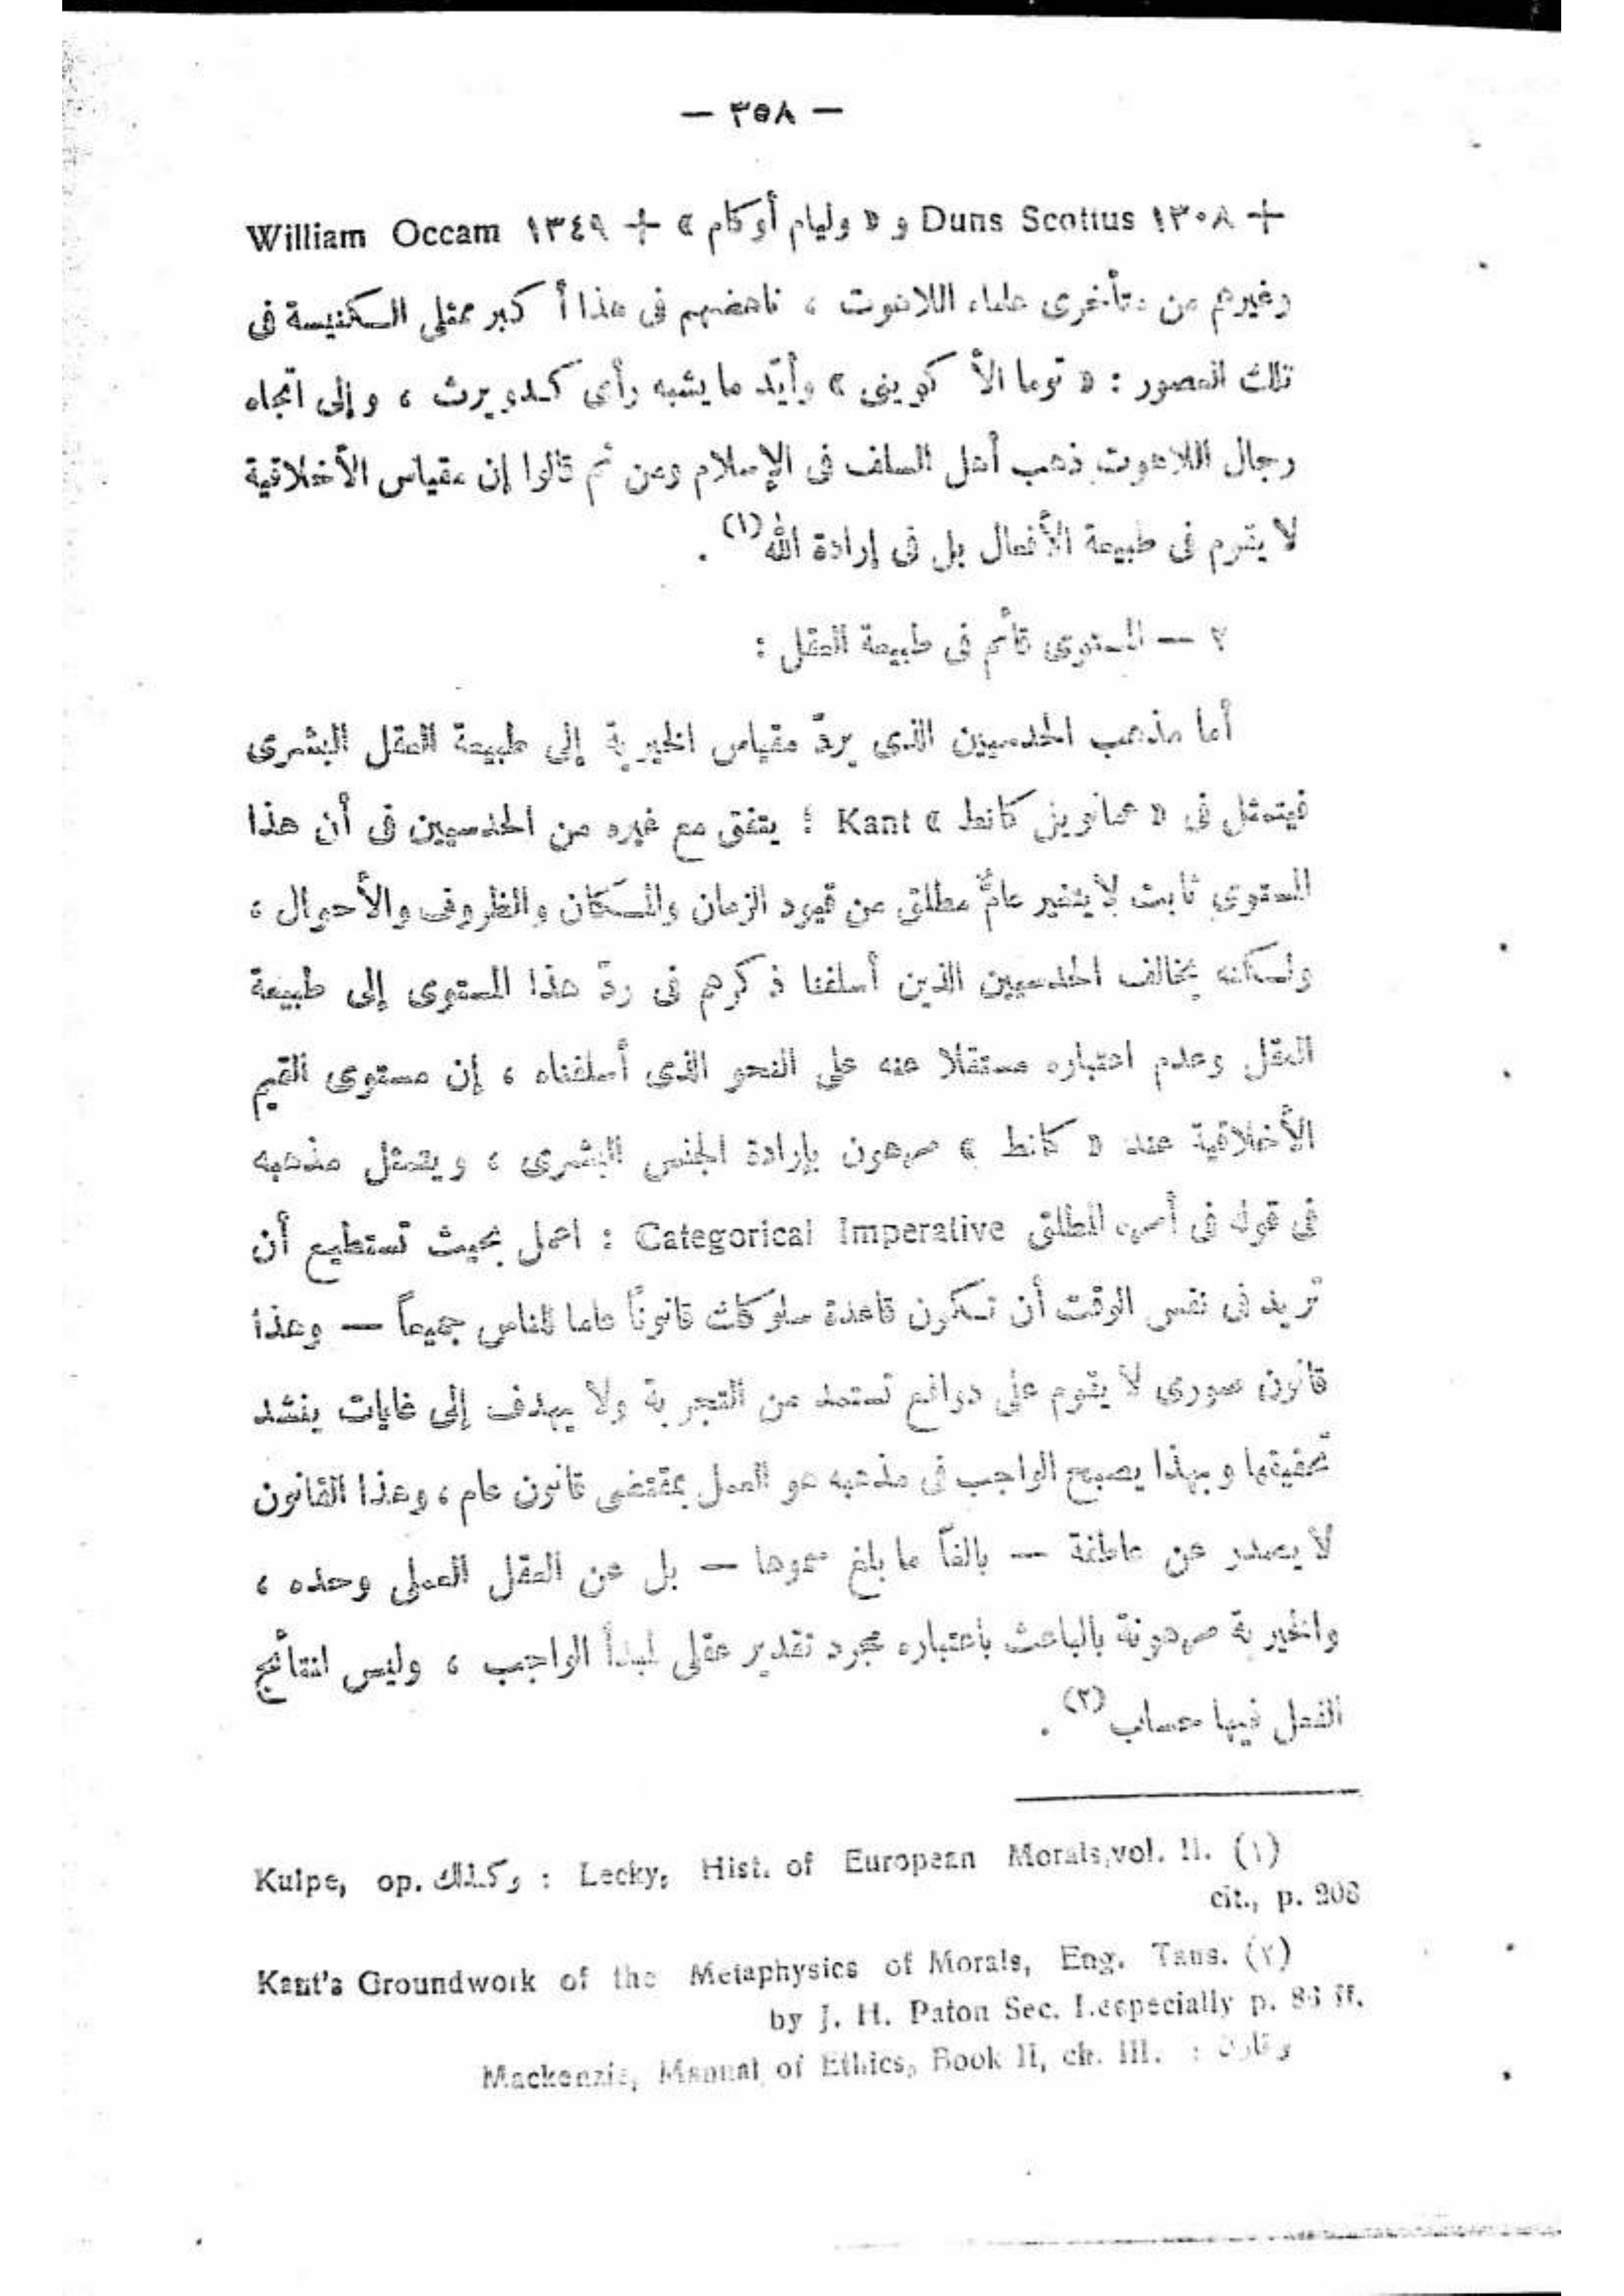 — ٣٥٨ —
+ ١٣٠٨ Duns Scottus و « وليام أوكام » + ١٣٤٩ William Occam
وغيرهم من متأخرى علماء اللاهوت ، ناهضهم فى هذا أكبر ممثلى الكنيسة فى
تلك العصور : « توما الأكوينى » وأيّد ما يشبه رأى كدويرث ، وإلى اتجاه
رجال اللاهوت ذهب أهل السلف فى الإسلام ومن ثم قالوا إن مقياس الأخلاقية
لا يقوم فى طبيعة الأفعال بل فى إرادة الله (١) .
٢ — المستوى قائم فى طبيعة العقل :
أما مذهب الحدسيين الذى يردّ مقياس الخيرية إلى طبيعة العقل البشرى
فيتمثل فى « عمانويل كانط » Kant ؛ يتفق مع غيره من الحدسيين فى أن هذا
المستوى ثابت لا يتغير عامٌّ مطلق من قيود الزمان والمكان والظروف والأحوال ،
ولكنه يخالف الحدسيين الذين أسلفنا ذكرهم فى ردّ هذا المستوى إلى طبيعة
العقل وعدم اعتباره مستقلا عنه على النحو الذى أسلفناه ، إن مستوى القيم
الأخلاقية عند « كانط » مرهون بإرادة الجنس البشرى ، ويتمثل مذهبه
فى قوله فى أمره المطلق Categorical Imperative : اعمل بحيث تستطيع أن
تريد فى نفس الوقت أن تكون قاعدة سلوكك قانوناً عاما للناس جميعاً — وهذا
قانون صورى لا يقوم على دوافع تستمد من التجربة ولا يهدف إلى غايات ينشد
تحقيقها وبهذا يصبح الواجب فى مذهبه هو العمل بمقتضى قانون عام ، وهذا القانون
لا يصدر عن عاطفة — بالغاً ما بلغ سموها — بل عن العقل العملى وحده ،
والخيرية مرهونة بالباعث باعتباره مجرد تقدير عقلى لمبدأ الواجب ، وليس لنتائج
الفعل فيها حساب (٢) .
(١) Lecky, Hist. of European Morals,vol. II. : وكذلك Kulpe, op.
cit., p. 208
(٢) Kant's Groundwork of the Metaphysics of Morals, Eng. Tans.
by J. H. Paton Sec. I.especially p. 86 ff.
وقارن : Mackenzie, Manual of Ethics, Book II, ch. III.